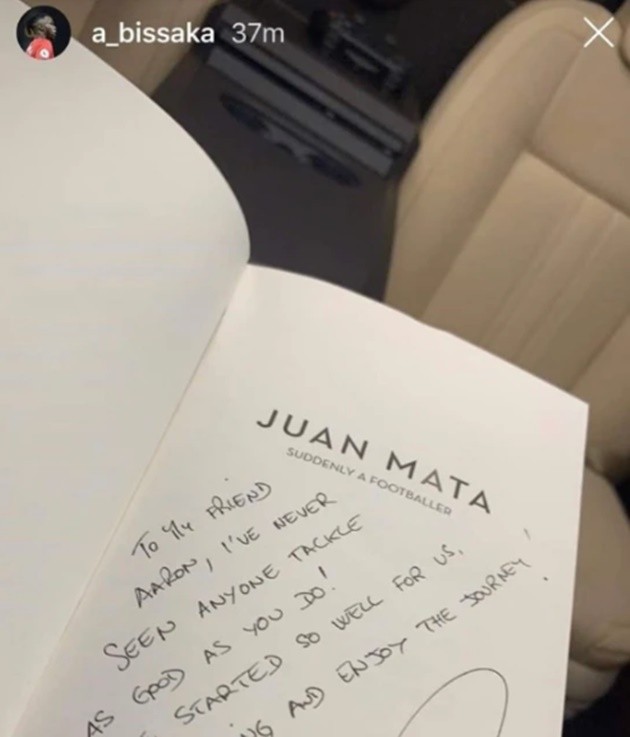 a_bissaka 37m
JUAN MATA
SUDDENLY A FOOTBALLER
TO MY FRIEND
AARON, I'VE NEVER
SEEN ANYONE TACKLE
AS GOOD AS YOU DO!
STARTED SO WELL FOR US,
AND ENJOY THE JOURNEY!